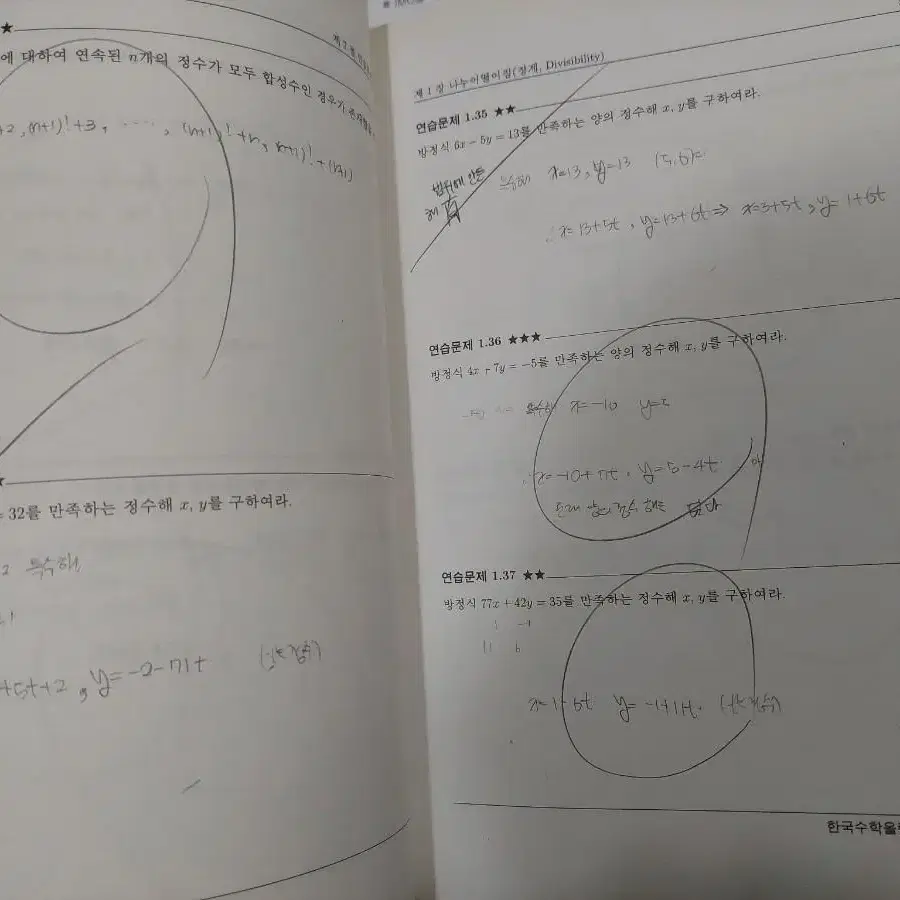 제 2 장
에 대하여 연속된 n개의 정수가 모두 합성수인 경우가
+2, (n+1)!+3, ·····, (n+1)!+n, (n+1)!+(n+1)
= 32를 만족하는 정수해 x, y를 구하여라.
2 특수해
+5t+2, y=-2-71t (t는 정수)
제 1 장 나누어떨어짐(정제, Divisibility)
연습문제 1.35 ★★
방정식 6x − 5y = 13를 만족하는 양의 정수해 x, y를 구하여라.
특수해 x=13, y=13
∴ x=13+5t, y=13+6t ⇒ x=3+5t, y=1+6t
연습문제 1.36 ★★★
방정식 4x + 7y = −5를 만족하는 양의 정수해 x, y를 구하여라.
특수해 x=-10 y=5
∴ x=-10+7t, y=5-4t
연습문제 1.37 ★★
방정식 77x + 42y = 35를 만족하는 정수해 x, y를 구하여라.
1 -1
11 6
x=1-6t y=-1+11t. (t는 정수)
한국수학올